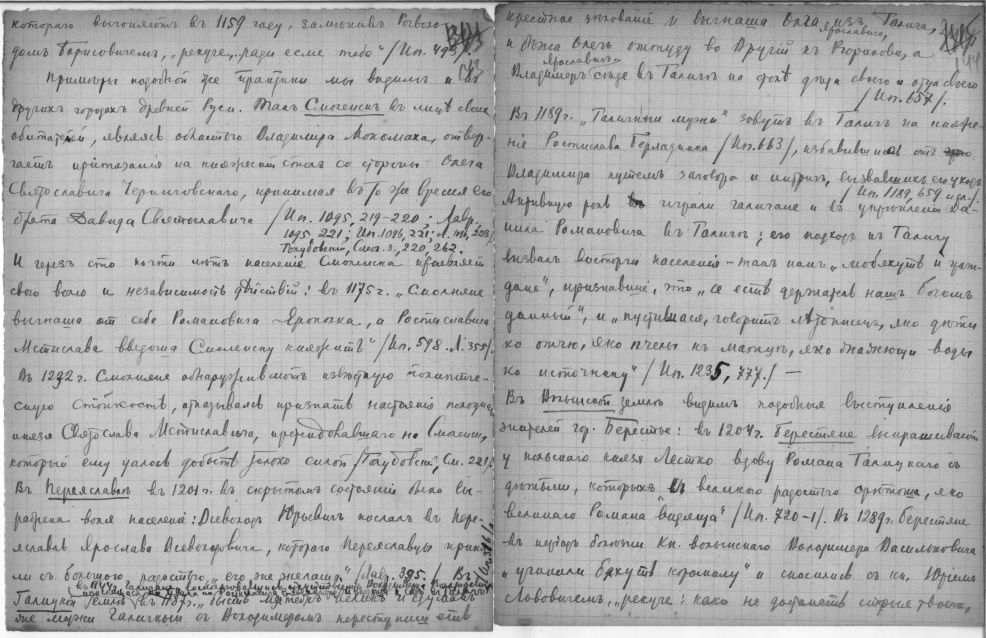 котораго выгоняютъ въ 1159 году, замѣнивъ Рогволо-
домъ Борисовичемъ, „рекуче, ради есме тебѣ“ /Ип. 493/.
Примѣры подобной же практики мы видимъ и въ
другихъ городахъ древней Руси. Такъ Смоленскъ въ лицѣ своихъ
обитателей, являясь областью Владиміра Мономаха, отвер-
гаетъ притязанія на княжескій столъ со стороны Олега
Святославича Черниговскаго, принимая въ то же время его
брата Давида Святославича /Ип. 1095, 219-220; Лавр.
1095, 221; Ип. 1096, 221;
Голубовскій, Смол. з., 220, 262.
И черезъ сто почти лѣтъ населеніе Смоленска проявляетъ
свою волю и независимость дѣйствій: въ 1175 г. „Смолняне
выгнаша от себе Романовича Ярополка, а Ростиславича
Мстислава введоша Смоленску княжитъ“ /Ип. 598. Л. 355/.
Въ 1232 г. Смоляне обнаруживаютъ извѣстную политиче-
скую стойкость, отказываясь признать
князя Святослава Мстиславича, на Смоленскъ,
который ему удалось добыть только силой /Голубовскій, См. 221/.
Въ Переяславлѣ въ 1201 г. въ скрытомъ состояніи была вы-
ражена воля населенія: Всеволодъ Юрьевичъ послалъ въ Пере-
яславль Ярослава Всеволодовича, котораго Переяславцы приня-
ли съ большою радостью, „его же желаша“ /Лавр. 395./ Въ
Галицкой землѣ въ 1187 г. „бысть мятежь великъ и сдумавъ-
ше мужи Галичкыи съ Володимеромъ переступиша
крестное цѣлованіе и выгнаша Олга изъ Галича,
Ярославича,
и бѣжа Олегъ оттуду во Вручій къ Рюрикови, а
Ярославичъ
Владимеръ сѣде въ Галичи на столѣ дѣда своего и отца своего
/Ип. 657/.
Въ 1189 г. „Галичкыи мужи“ зовутъ въ Галичъ на княже-
ніе Ростислава Берладника /Ип. 663/, избавившись отъ
Владимира путемъ заговора и интригъ, вызвавшихъ его уходъ
/Ип. 1189, 659 и дл./
Активную роль играли галичане и въ укрѣпленіи Да-
нила Романовича въ Галичѣ; его подходъ къ Галичу
вызвалъ восторги населенія — такъ какъ „мовятъ и гражь-
дане“, признавшіе, что „се есть держатель нашъ Богомъ
данный“, и „пустишася, говоритъ лѣтописецъ, яко дѣти
ко отчю, яко пчелы къ маткѣ, яко жажющи воды
ко источнику“ /Ип. 1235, 777./ —
Въ Волынской землѣ видимъ подобныя выступленія
жителей гор. Берестье: въ 1204 г. Берестяне выпрашиваютъ
у польскаго князя Лестко вдову Романа Галицкаго съ
дѣтьми, которыхъ „съ великою радостью срѣтоша, яко
великаго Романа видяща“ /Ип. 720-1/. Въ 1289 г. берестяне
въ періодъ болѣзни кн. волынскаго Володимера Васильковича
„учинили бяхуть коромолу“ и снеслись съ кн. Юріемъ
Львовичемъ, „рекуче: како не достанеть стрыя твоего,